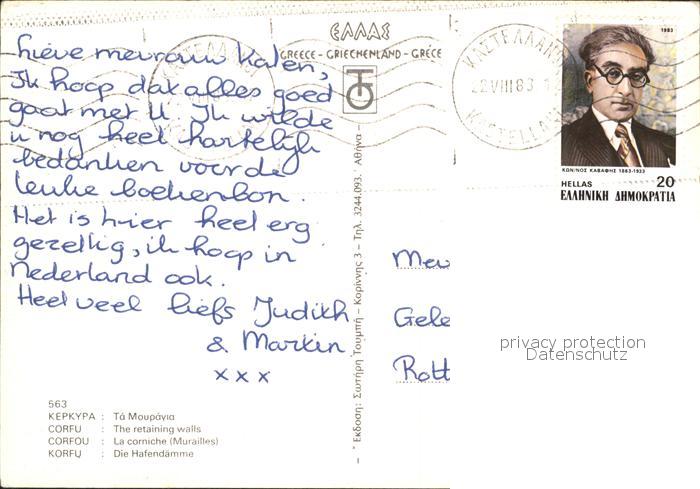 lieve mevrouw Kalen,
Ik hoop dat alles goed
gaat met U. Ik wilde
u nog heel hartelijk
bedanken voor de
leuke boekenbon.
Het is hier heel erg
gezellig, ik hoop in
Nederland ook.
Heel veel liefs Judith
& Martin
x x x
563
ΚΕΡΚΥΡΑ : Τά Μουράγια
CORFU : The retaining walls
CORFOU : La corniche (Murailles)
KORFU : Die Hafendämme
ΕΛΛΑΣ
GREECE - GRIECHENLAND - GRÈCE
Ἔκδοση: Σωτήρη Τουμπή – Κορίννης 3 – Τηλ. 3244.093. Ἀθήνα –
ΚΑΣΤΕΛΛΑΝΟΙ
22 VIII 83
KASTELLANI
1983
ΚΩΝ/ΝΟΣ ΚΑΒΑΦΗΣ 1863-1933
HELLAS 20
ΕΛΛΗΝΙΚΗ ΔΗΜΟΚΡΑΤΙΑ
Mev
Gele
Rott
privacy protection
Datenschutz